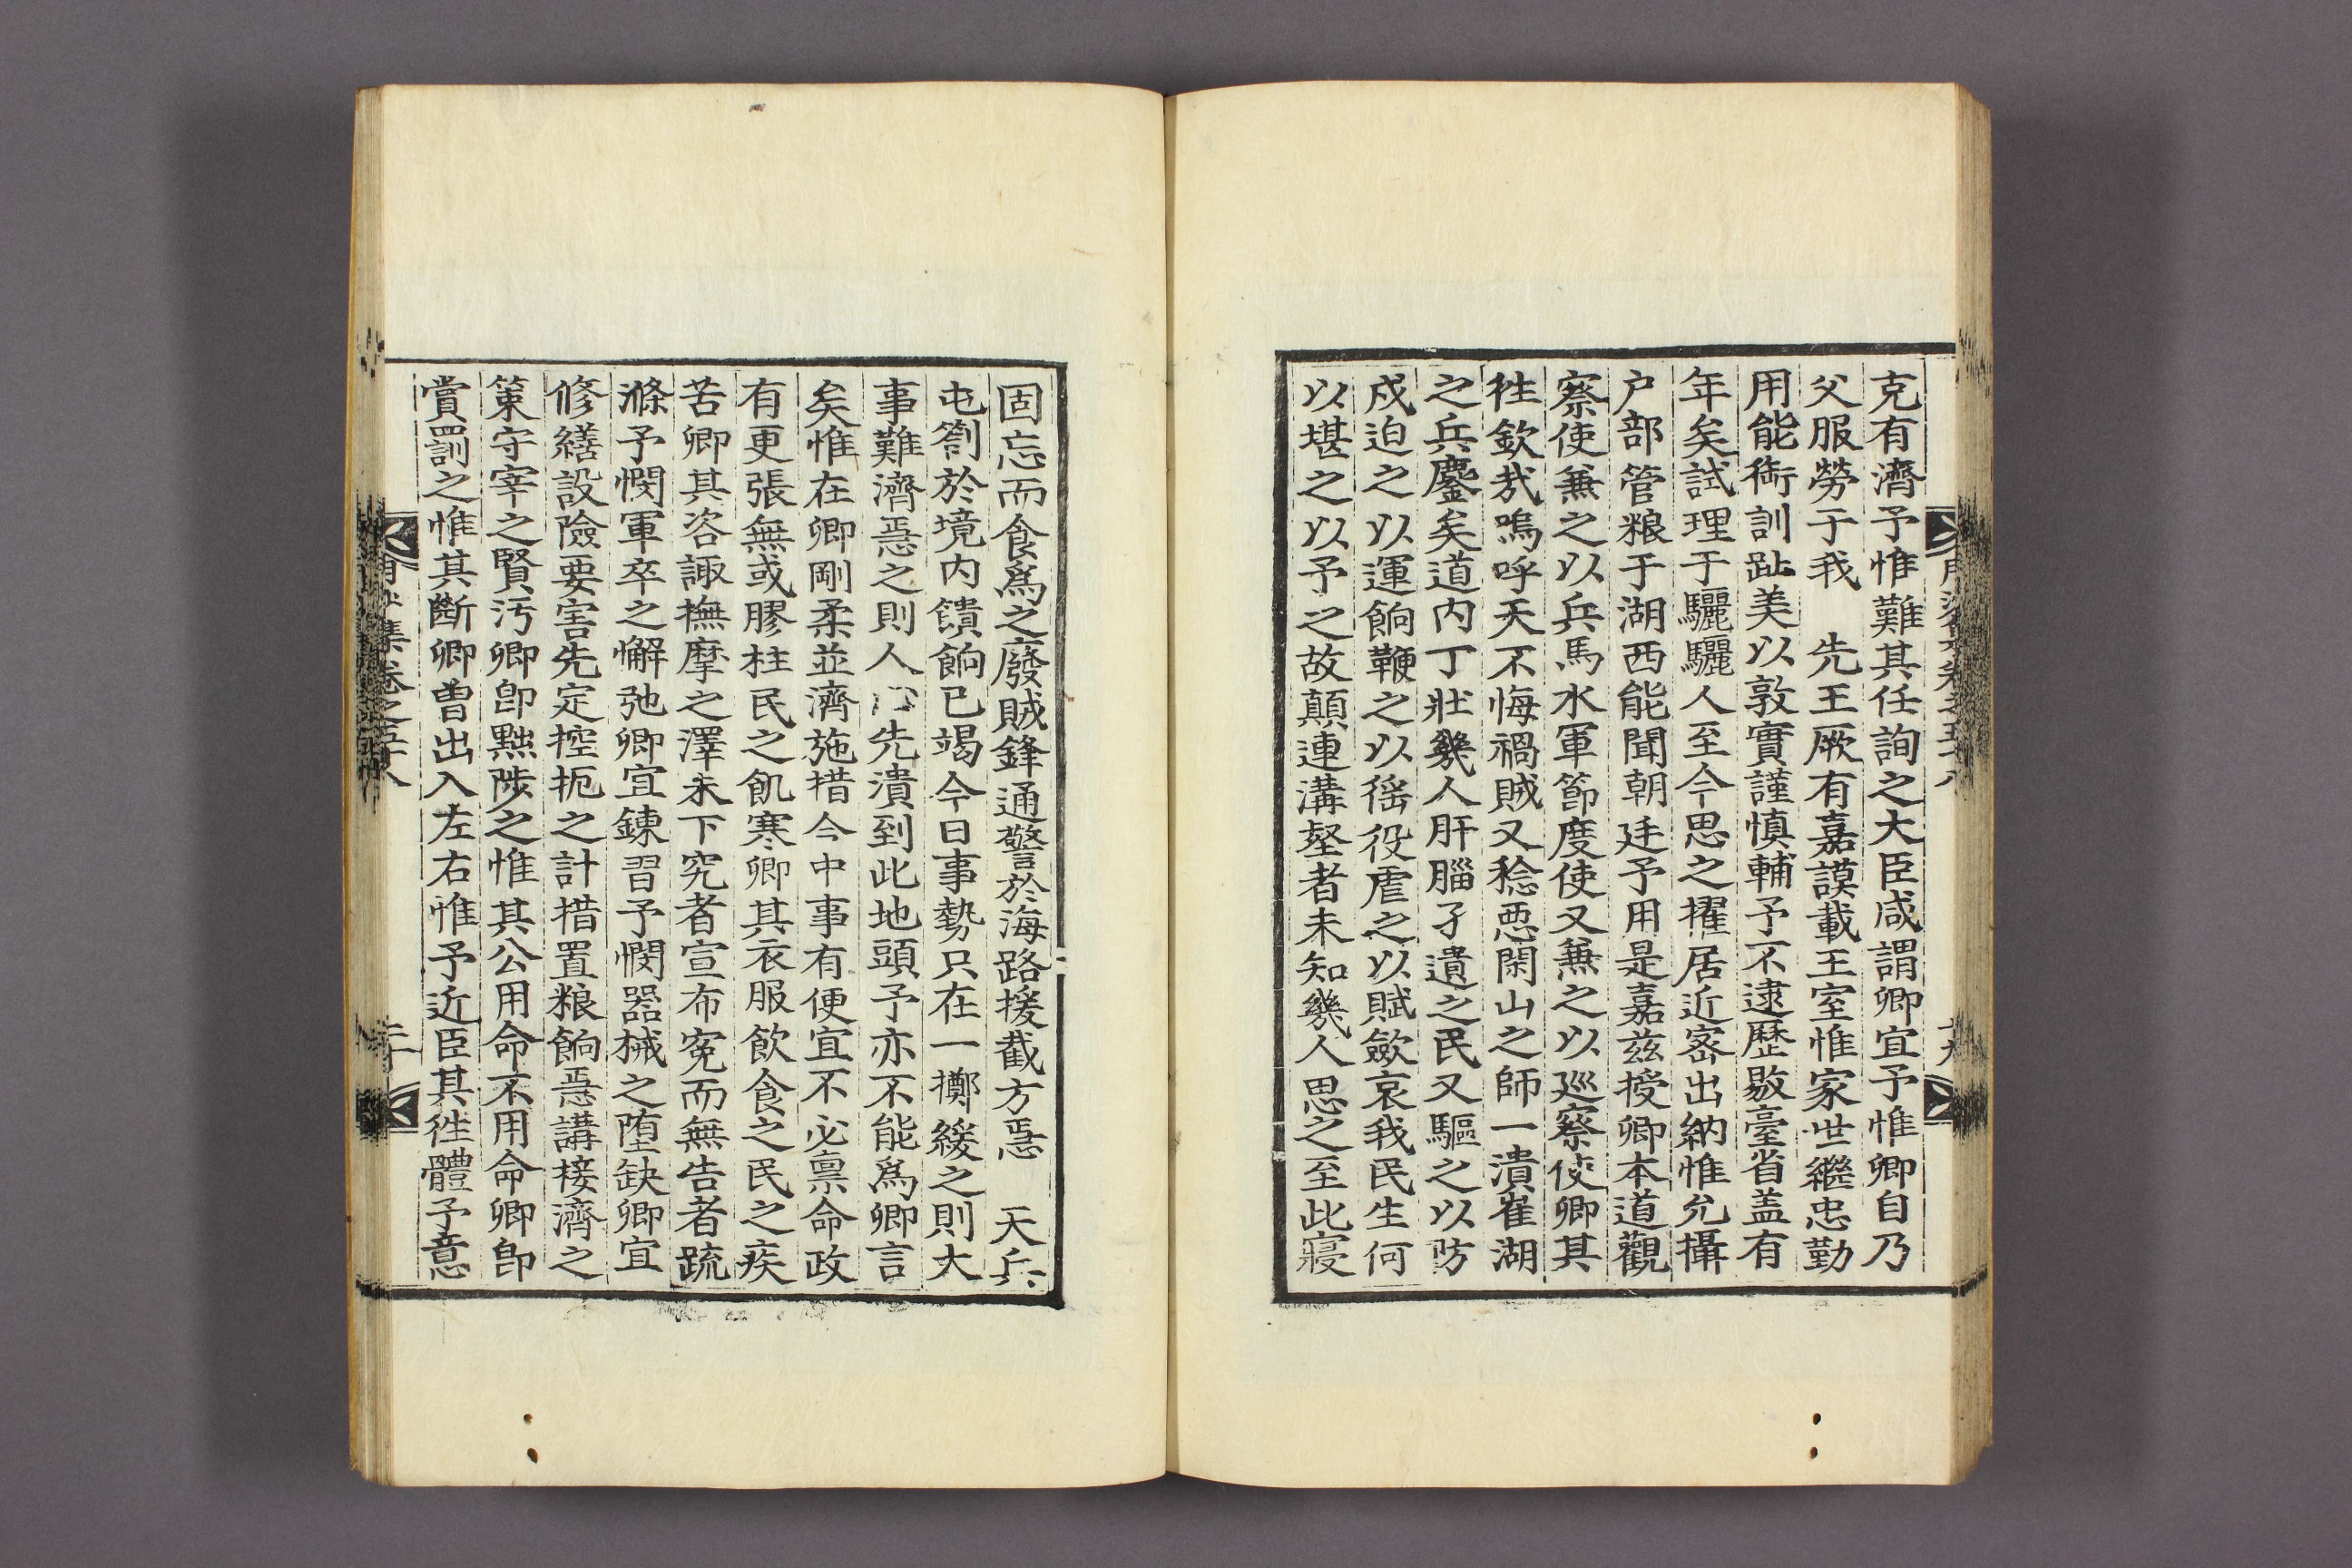 克有濟予惟難其任詢之大臣咸謂卿宜予惟卿自乃
父服勞于我　先王厥有嘉謨載王室惟家世繼忠勤
用能銜訓趾美以敦實謹慎輔予不逮歷敭臺省盖有
年矣試理于驪驪人至今思之擢居近密出納惟允攝
户部管粮于湖西能聞朝廷予用是嘉兹授卿本道觀
察使兼之以兵馬水軍節度使又兼之以巡察使卿其
徃欽㦲嗚呼天不悔禍賊又稔惡閑山之師一潰崔湖
之兵鏖矣道內丁壯幾人肝腦孑遺之民又驅之以防
戍迫之以運餉鞭之以徭役虐之以賦歛哀我民生何
以堪之以予之故顛連溝壑者未知幾人思之至此寢
固忘而食爲之廢賊鋒通警於海路援截方急　天兵
屯劄於境內饋餉已竭今日事勢只在一擲緩之則大
事難濟急之則人心先潰到此地頭予亦不能爲卿言
矣惟在卿剛柔並濟施措今中事有便宜不必禀命政
有更張無或膠柱民之飢寒卿其衣服飲食之民之疾
苦卿其咨諏撫摩之澤未下究者宣布寃而無告者䟽
滌予憫軍卒之懈弛卿宜錬習予憫器械之墮缺卿宜
修繕設險要害先定控扼之計措置粮餉急講接濟之
策守宰之賢汚卿卽黜陟之惟其公用命不用命卿卽
賞罰之惟其斷卿曽出入左右惟予近臣其徃體予意
集卷之五十八
二十